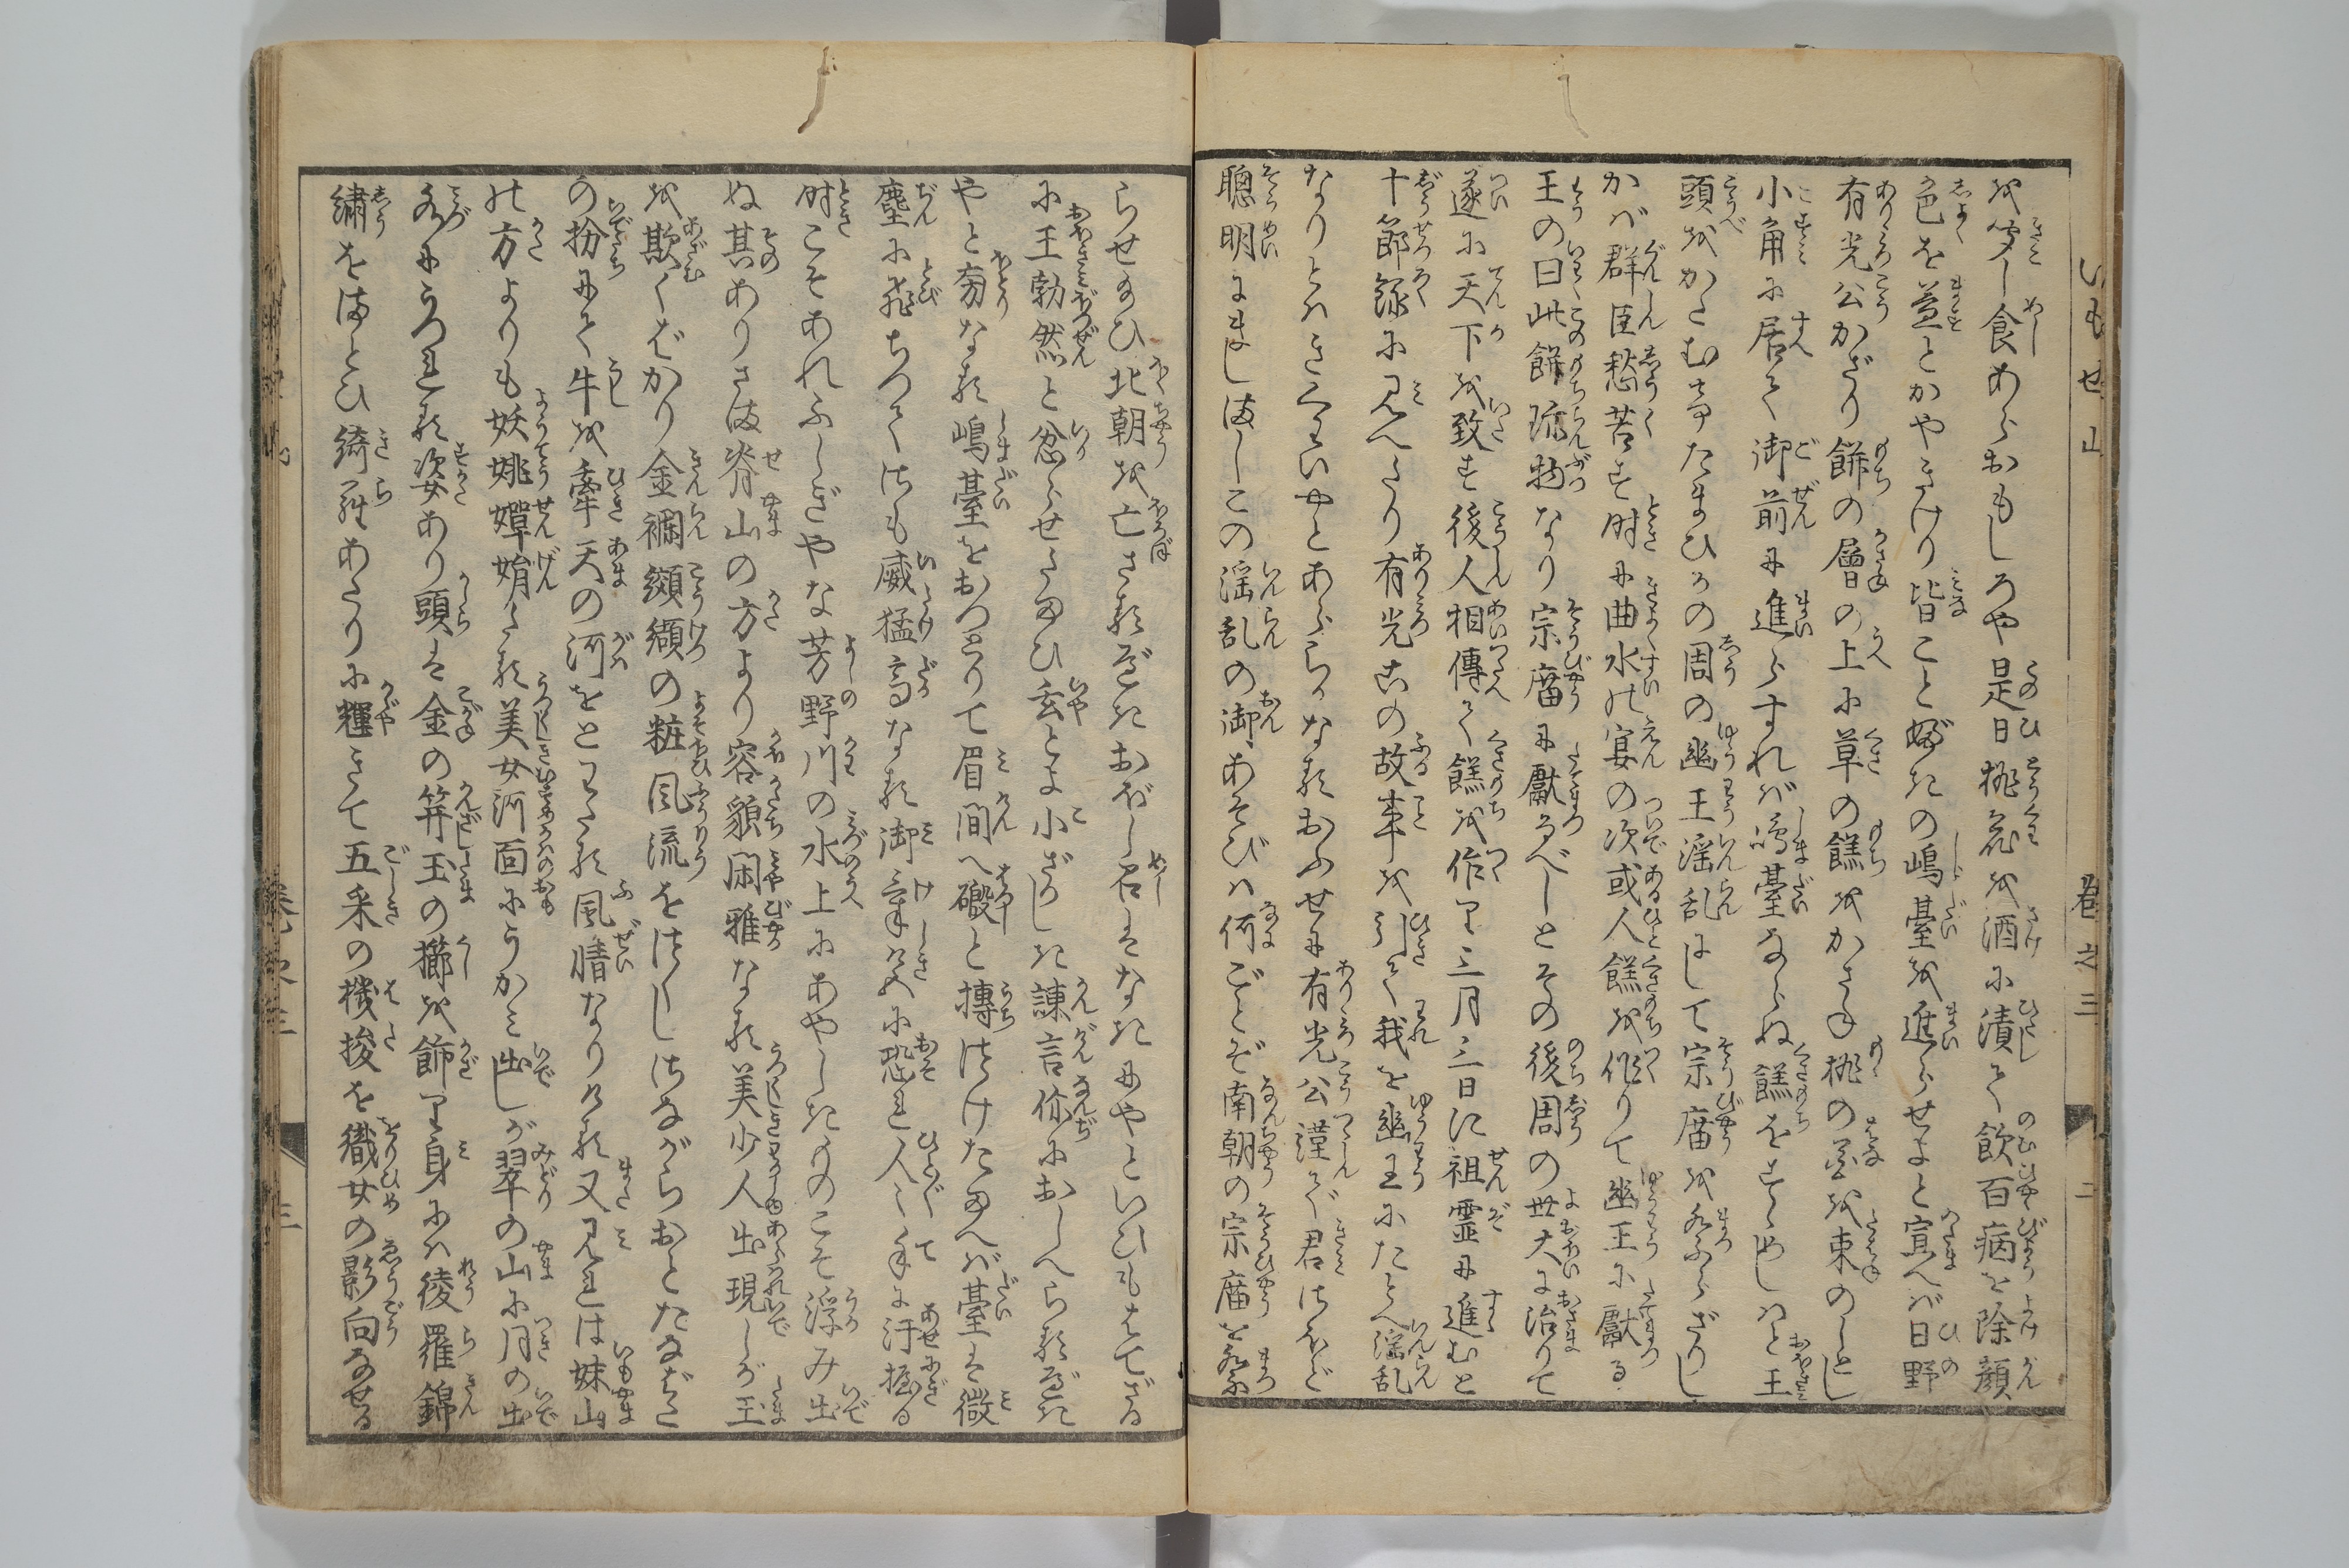 いもせ山 巻之三 二
を聞し食あらおもしろや是日桃花を酒に漬て飲百病を除顔
色を益とかやきけり皆こと婦きの嶋臺を進らせよと宣へば日野
有光公かざり餅の層の上に草の餻をかさね桃の花を束のしとし
小角に居て御前に進らすれば嶋臺ならぬ餻をすゝめしはと王
頭をかたむけたまひかの周の幽王淫乱にして宗廟を祭ふらざりし
かば群臣愁苦す時に曲水の宴の次或人餻を作りて幽王に獻る
王の曰此餅珎物なり宗廟に獻るべしとその後周の世大に治りて
遂に天下を致す後人相傳て餻を作て三月三日に祖霊に進むと
十節録に見へたり有光此の故事を引て我を幽王にたとへ淫乱
なりとはきくわいやとあららかなるおふせに有光公謹で君はほど
聰明にましましこの淫乱の御あそびは何ごとぞ南朝の宗廟を祭
らせ給ひ北朝を亡さるべきおぼし召はなきにやといひもはてざる
に王勃然と忿らせたまひ玄とよ小ざかしき諫言你におしへらるべき
やと傍なる嶋臺をおつとりて眉間へ礑と摶つけたまへば臺は微
塵に飛ちつてけにも威猛高なる御氣色に恐れ人々手に汗握る
時こそあれふしぎやな芳野川の水上にあやしきものこそ浮み出
ぬ其ありさま脊山の方より容貌閑雅なる美少人出現しが玉
を欺くばかり金襴纐纈の粧風流をけしながらおとたなばた
の扮にて牛を牽天の河をとわたる風情なりける又見れは妹山
の方よりも妖姚嬋娟たる美女河面にうかみ出しが翠の山に月の出
水にうつれる姿あり頭は金の笄玉の櫛を飾て身には綾羅錦
繍をまとひ綺羅あたりに輝きて五采の機梭を織女の影向なせる
三